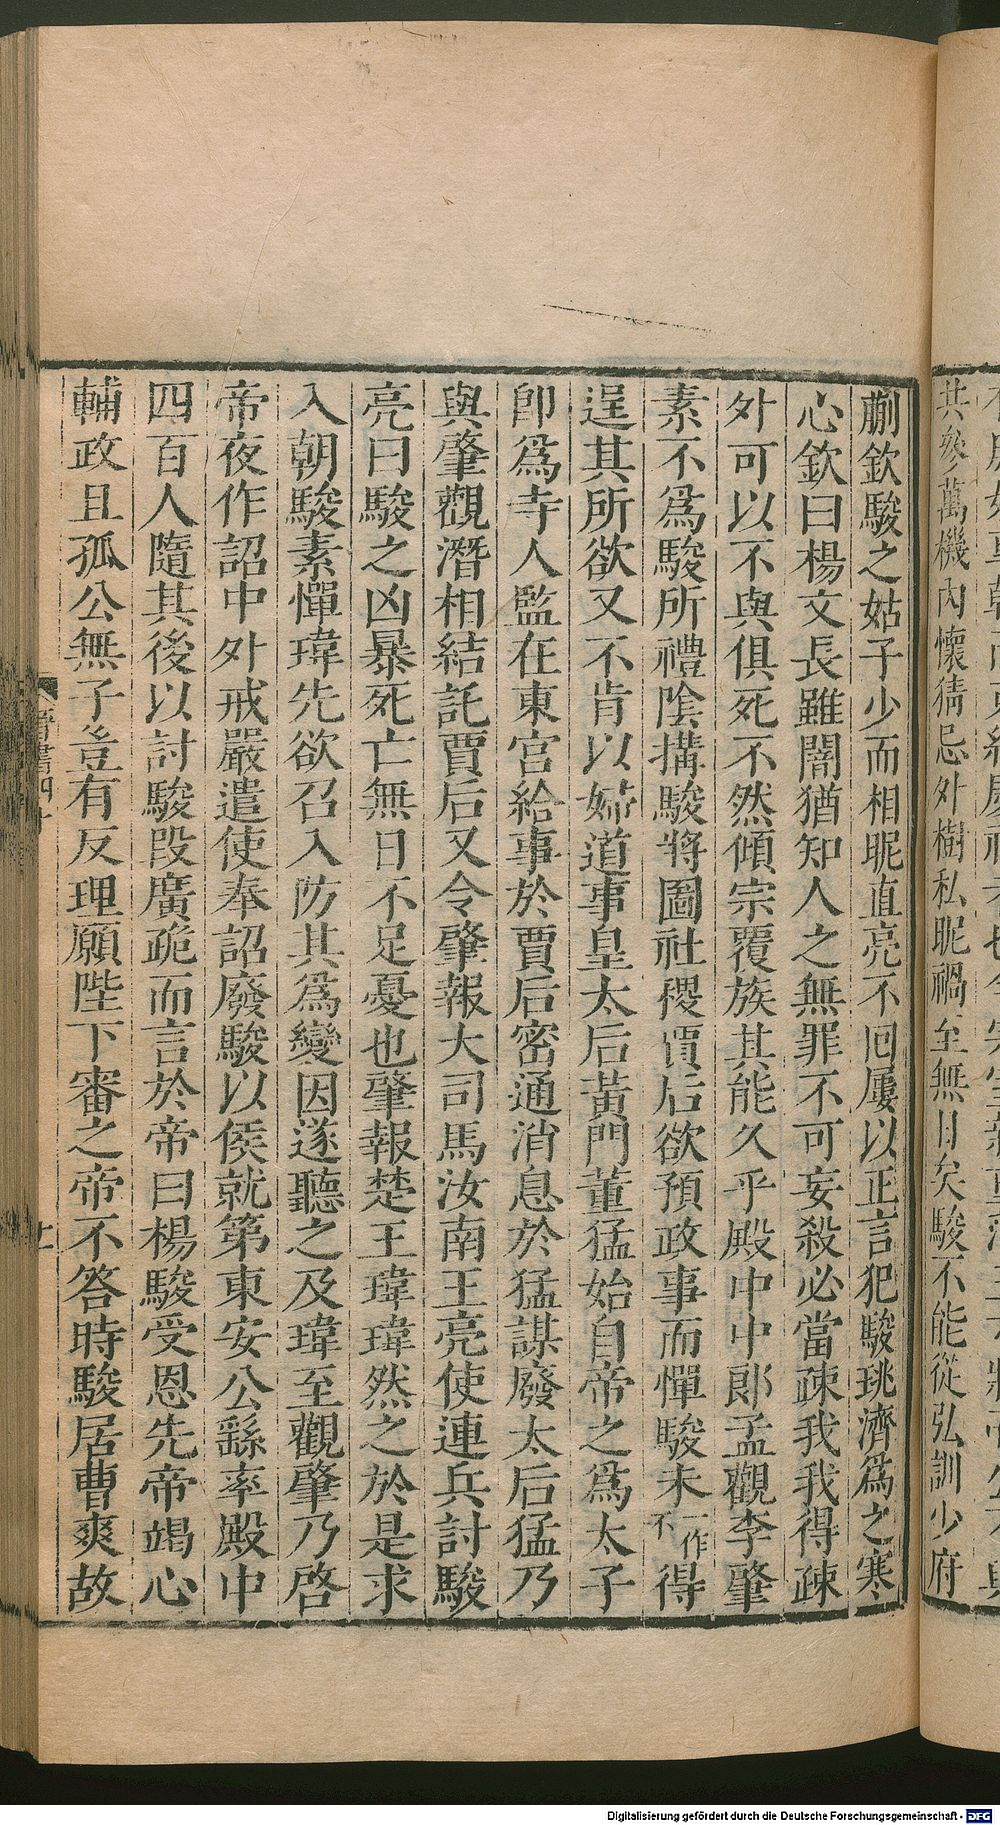 共參萬機內懷猜忌外樹私昵禍至無日矣駿不能從弘訓少府
蒯欽駿之姑子少而相昵直亮不回屢以正言犯駿珧濟爲之寒
心欽曰楊文長雖闇猶知人之無罪不可妄殺必當疎我我得疎
外可以不與俱死不然傾宗覆族其能久乎殿中中郎孟觀李肇
素不爲駿所禮陰搆駿將圖社稷賈后欲預政事而憚駿未一作不得
逞其所欲又不肯以婦道事皇太后黃門董猛始自帝之爲太子
卽爲寺人監在東宮給事於賈后密通消息於猛謀廢太后猛乃
與肇觀潛相結託賈后又令肇報大司馬汝南王亮使連兵討駿
亮曰駿之凶暴死亡無日不足憂也肇報楚王瑋瑋然之於是求
入朝駿素憚瑋先欲召入防其爲變因遂聽之及瑋至觀肇乃啓
帝夜作詔中外戒嚴遣使奉詔廢駿以侯就第東安公繇率殿中
四百人隨其後以討駿段廣跪而言於帝曰楊駿受恩先帝竭心
輔政且孤公無子豈有反理願陛下審之帝不答時駿居曹爽故
晉書四十
Digitalisierung gefördert durch die Deutsche Forschungsgemeinschaft - DFG